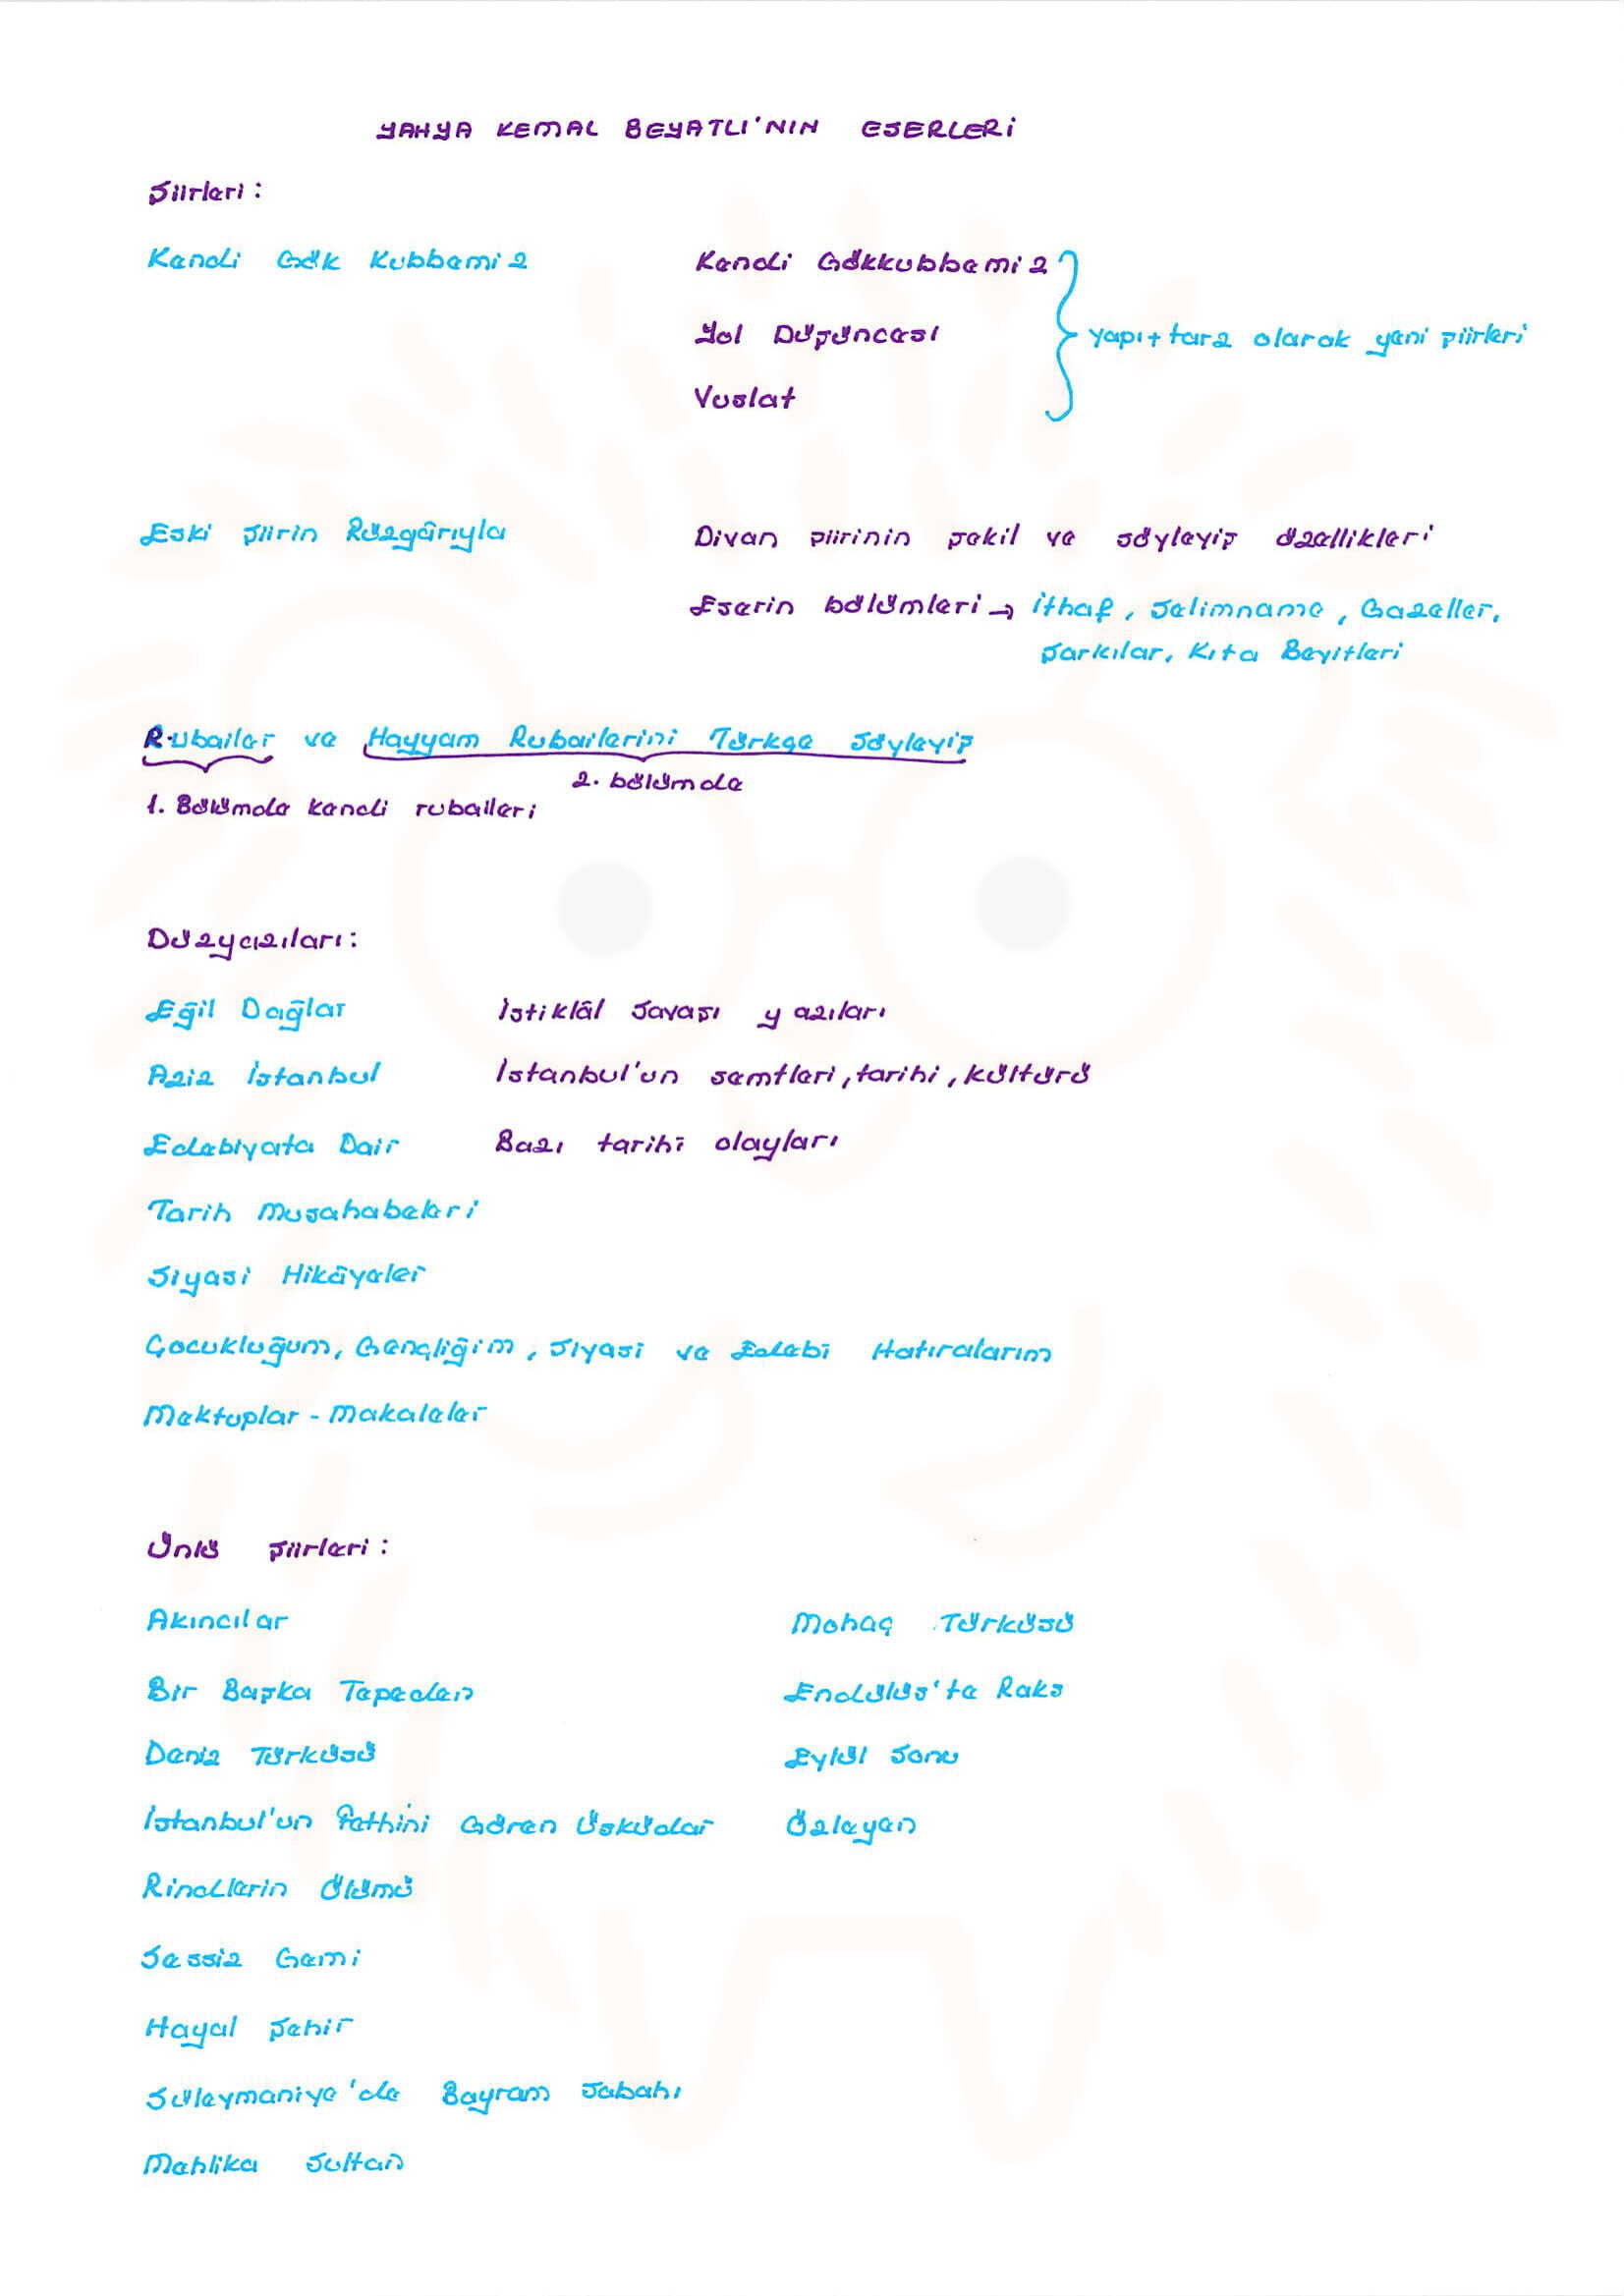 YAHYA KEMAL BEYATLI'NIN ESERLERİ
Şiirleri :
Kendi Gök Kubbemiz
Kendi Gökkubbemiz
Yol Düşüncesi
Vuslat
yapı + tarz olarak yeni şiirleri
Eski Şiirin Rüzgârıyla
Divan şiirinin şekil ve söyleyiş özellikleri
Eserin bölümleri → İthaf, Selimname, Gazeller,
Şarkılar, Kıta Beyitleri
Rubailer ve Hayyam Rubailerini Türkçe Söyleyiş
2. bölümde
1. Bölümde kendi rubaileri
Düzyazıları :
Eğil Dağlar
İstiklâl Savaşı yazıları
Aziz İstanbul
İstanbul'un semtleri, tarihi, kültürü
Edebiyata Dair
Bazı tarihî olayları
Tarih Musahabeleri
Siyasi Hikâyeler
Çocukluğum, Gençliğim, Siyasi ve Edebî Hatıralarım
Mektuplar - Makaleler
Ünlü şiirleri :
Akıncılar
Mohaç Türküsü
Bir Başka Tepeden
Endülüs'te Raks
Deniz Türküsü
Eylül Sonu
İstanbul'un Fethini Gören Üsküdar
Özleyen
Rindlerin Ölümü
Sessiz Gemi
Hayal Şehir
Süleymaniye'de Bayram Sabahı
Mehlika Sultan